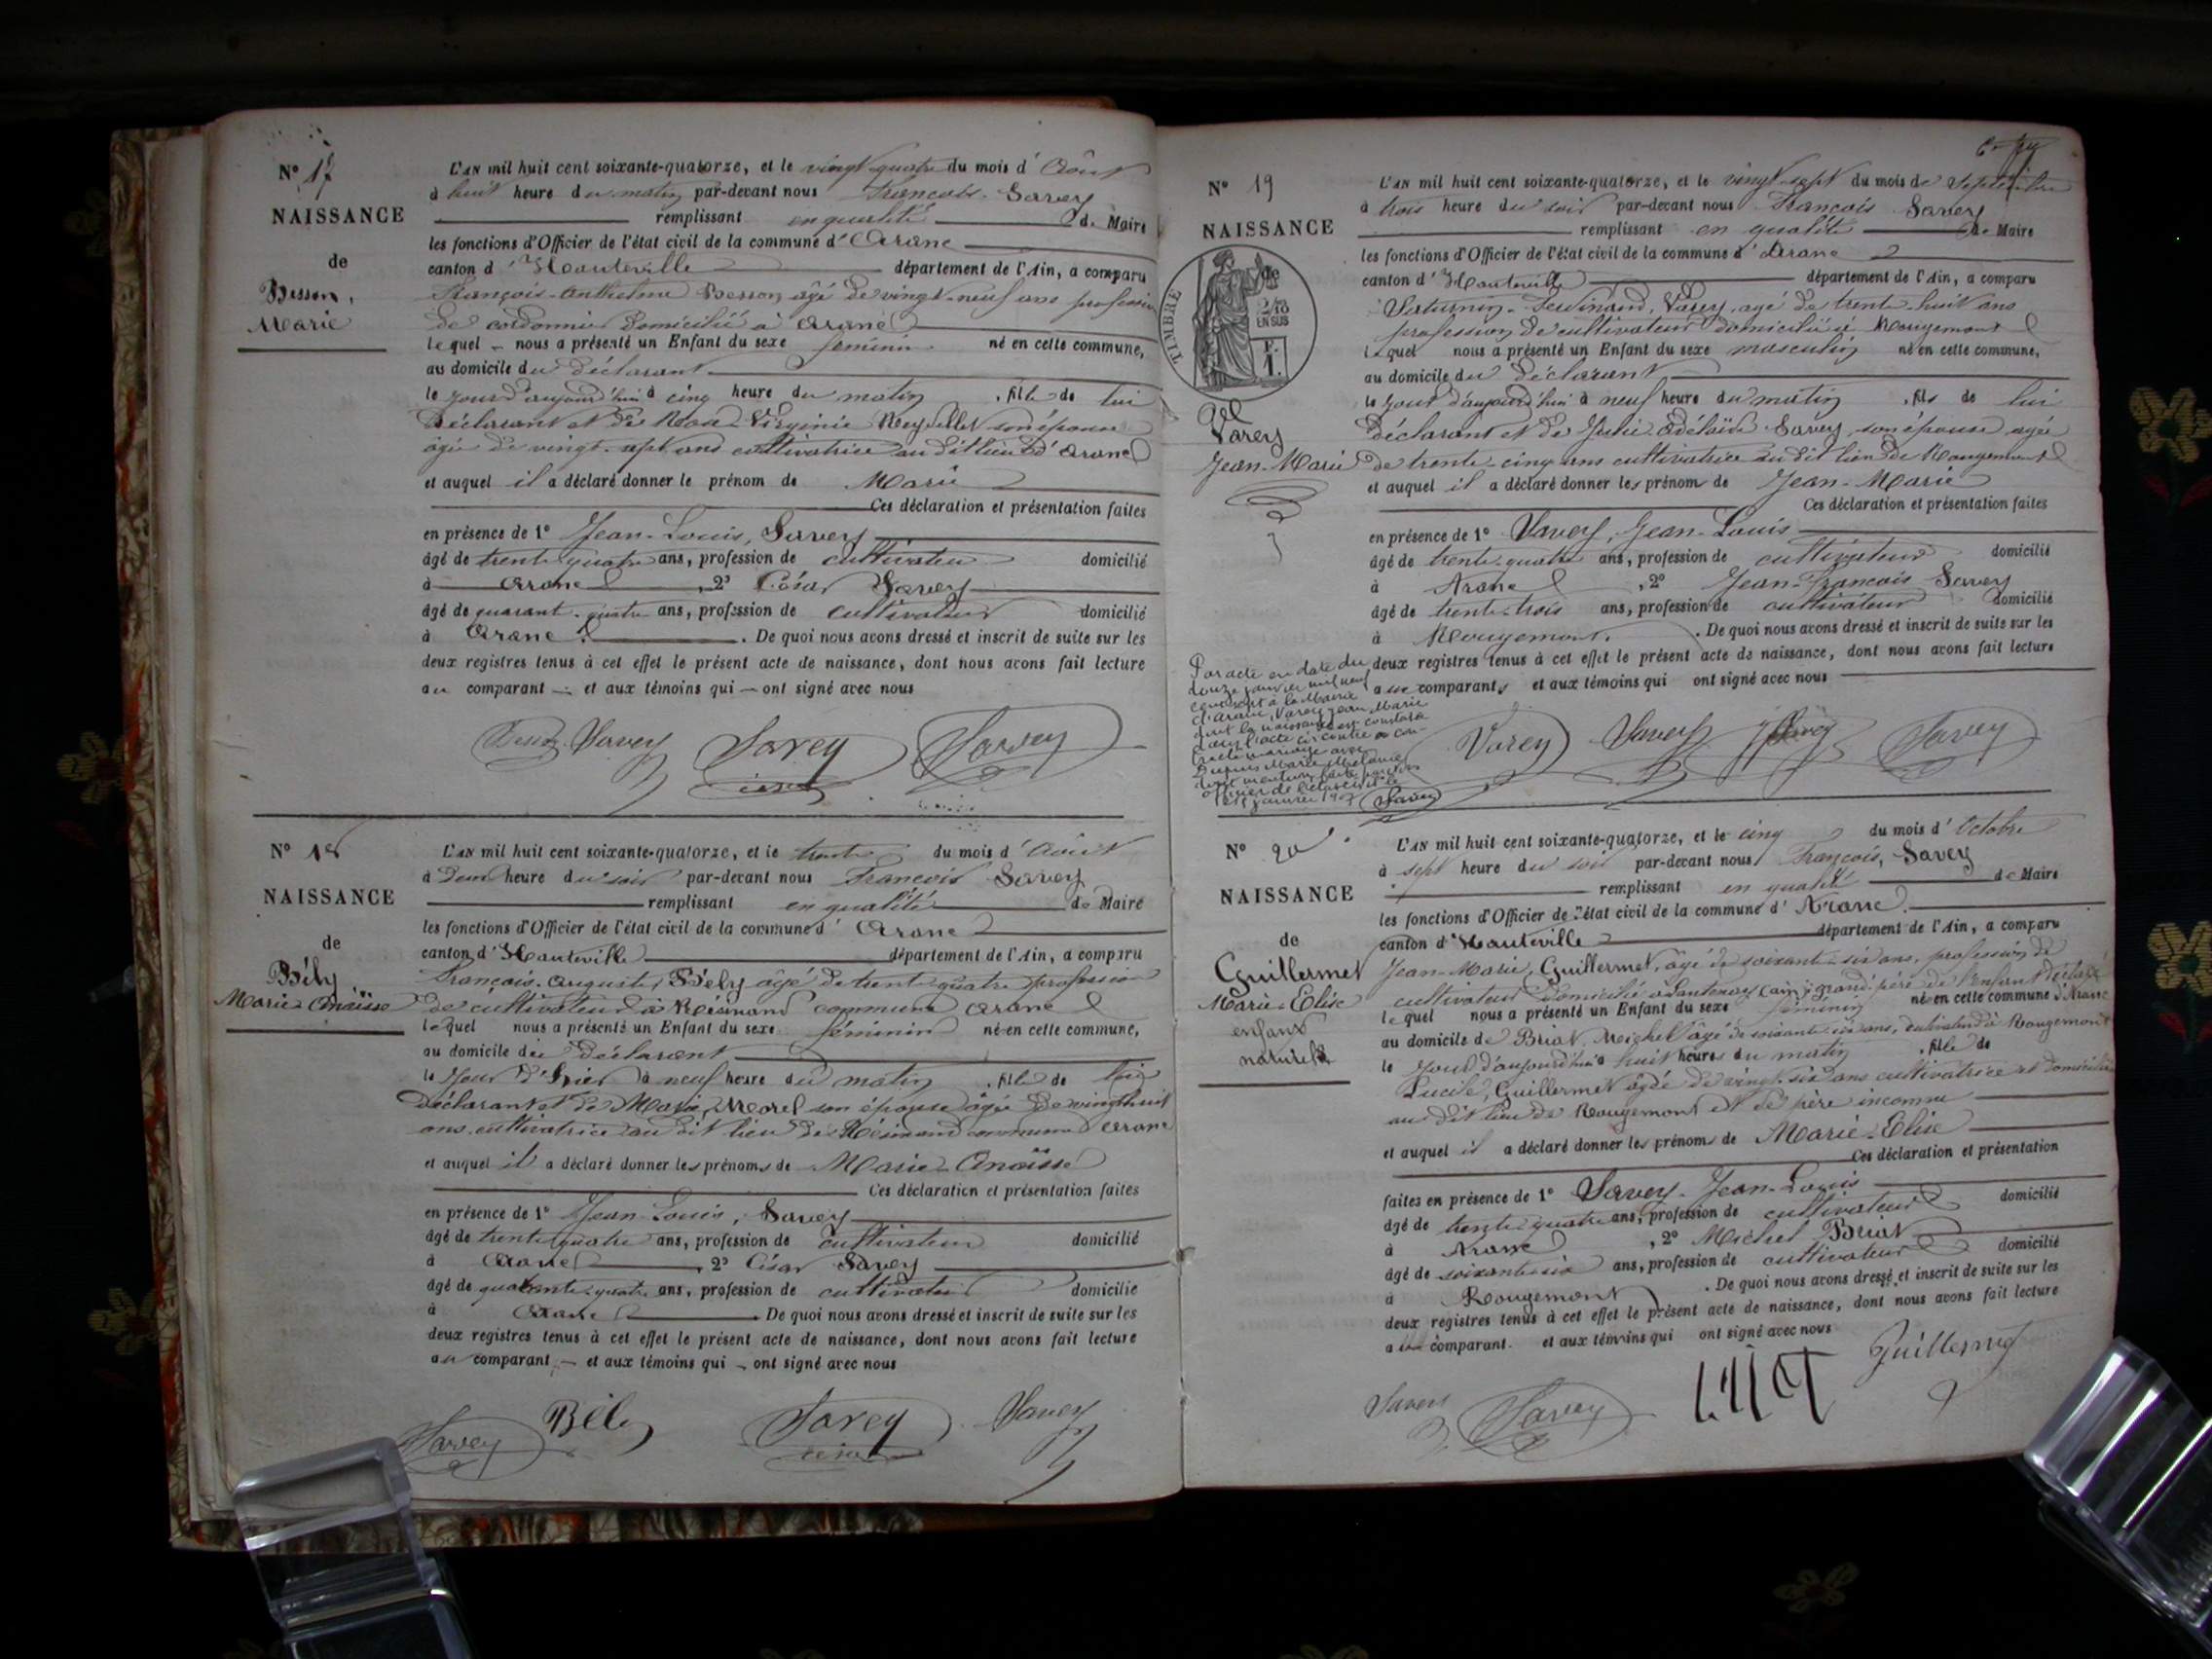 N° 17
NAISSANCE
de
Besson,
Marie
L'AN mil huit cent soixante-quatorze, et le vingt-quatre du mois d' Août
à huit heure du matin par-devant nous François Savey
remplissant en qualité de Maire
les fonctions d'Officier de l'état civil de la commune d' Arane
canton d' Hauteville département de l'Ain, a comparu
François-Anthelme Besson âgé de vingt-neuf ans profession
de cordonnier domicilié à Arane
lequel nous a présenté un Enfant du sexe féminin né en cette commune,
au domicile du déclarant
le jour d'aujourd'hui à cinq heure du matin, fille de lui
déclarant et de Virginie son épouse
âgée de vingt-sept ans cultivatrice au dit lieu d'Arane
et auquel il a déclaré donner le prénom de Marie
Ces déclaration et présentation faites
en présence de 1° Jean-Louis, Savey
âgé de trente-quatre ans, profession de cultivateur domicilié
à Arane, 2° César Savey
âgé de quarant-quatre ans, profession de cultivateur domicilié
à Arane. De quoi nous avons dressé et inscrit de suite sur les
deux registres tenus à cet effet le présent acte de naissance, dont nous avons fait lecture
au comparant et aux témoins qui ont signé avec nous
Savey Savey Savey
césar
N° 18
NAISSANCE
de
Bély
Marie-Anaïsse
L'AN mil huit cent soixante-quatorze, et le trente du mois d' Août
à deux heure du soir par-devant nous François Savey
remplissant en qualité de Maire
les fonctions d'Officier de l'état civil de la commune d' Arane
canton d' Hauteville département de l'Ain, a comparu
François-Auguste, Bély âgé de trente-quatre profession
de cultivateur à Résinand commune Arane
lequel nous a présenté un Enfant du sexe féminin né en cette commune,
au domicile du déclarant
le jour d'hier à neuf heure du matin, fille de lui
déclarant et de Marie, Morel son épouse âgée de vingt-huit
ans cultivatrice au dit lieu de Résinand commune Arane
et auquel il a déclaré donner les prénoms de Marie-Anaïsse
Ces déclaration et présentation faites
en présence de 1° Jean-Louis, Savey
âgé de trente-quatre ans, profession de cultivateur domicilié
à Arane, 2° César Savey
âgé de quarante-quatre ans, profession de cultivateur domicilié
à Arane. De quoi nous avons dressé et inscrit de suite sur les
deux registres tenus à cet effet le présent acte de naissance, dont nous avons fait lecture
au comparant et aux témoins qui ont signé avec nous
Savey Bély Savey Savey
césar
N° 19
NAISSANCE
de
TIMBRE
2/10
EN SUS
F.
1.
Varey
Jean-Marie
L'AN mil huit cent soixante-quatorze, et le vingt-sept du mois de Septembre
à trois heure du soir par-devant nous François Savey
remplissant en qualité de Maire
les fonctions d'Officier de l'état civil de la commune d' Arane
canton d' Hauteville département de l'Ain, a comparu
Saturnin-Ferdinand, Varey, agé de trente-huit ans
profession de cultivateur domicilié à Rougemont
lequel nous a présenté un Enfant du sexe masculin né en cette commune,
au domicile du déclarant
le jour d'aujourd'hui à neuf heure du matin, fils de lui
déclarant et de Julie Adélaïde Savey son épouse agée
de trente-cinq ans cultivatrice au dit lieu de Rougemont
et auquel il a déclaré donner les prénom de Jean-Marie
Ces déclaration et présentation faites
en présence de 1° Savey, Jean-Louis
âgé de trente-quatre ans, profession de cultivateur domicilié
à Arane, 2° Jean-François Savey
âgé de trente-trois ans, profession de cultivateur domicilié
à Rougemont. De quoi nous avons dressé et inscrit de suite sur les
deux registres tenus à cet effet le présent acte de naissance, dont nous avons fait lecture
aux comparants et aux témoins qui ont signé avec nous
Varey Savey Savey Savey
Par acte en date du
douze janvier mil neuf
cent sept à la Mairie
d'Arane, Varey Jean Marie
dont la naissance est constatée
dans l'acte ci-contre a con-
tracté mariage avec
Dupuis Marie Mélanie
dont mention faite par nous
officier de l'état civil le
janvier 1907 Savey
N° 20
NAISSANCE
de
Guillermet
Marie-Elise
enfant
naturel
L'AN mil huit cent soixante-quatorze, et le cinq du mois d' Octobre
à sept heure du soir par-devant nous François, Savey
remplissant en qualité de Maire
les fonctions d'Officier de l'état civil de la commune d' Arane.
canton d' Hauteville département de l'Ain, a comparu
Jean-Marie, Guillermet, âgé de soixante-six ans, profession de
cultivateur domicilié à Lantenay (ain) grand père de l'enfant
lequel nous a présenté un Enfant du sexe féminin né en cette commune d'Arane
au domicile de Briat, Michel âgé de soixante-six ans, cultivateur à Rougemont
le jour d'aujourd'hui à huit heures du matin, fille de
Lucile, Guillermet âgée de vingt-six ans cultivatrice et domiciliée
au dit lieu de Rougemont et de père inconnu
et auquel il a déclaré donner les prénoms de Marie-Elise
Ces déclaration et présentation
faites en présence de 1° Savey-Jean-Louis
âgé de trente-quatre ans, profession de cultivateur domicilié
à Arane, 2° Michel Briat
âgé de soixante-six ans, profession de cultivateur domicilié
à Rougemont. De quoi nous avons dressé et inscrit de suite sur les
deux registres tenus à cet effet le présent acte de naissance, dont nous avons fait lecture
au comparant. et aux témoins qui ont signé avec nous
Savey Savey Guillermet